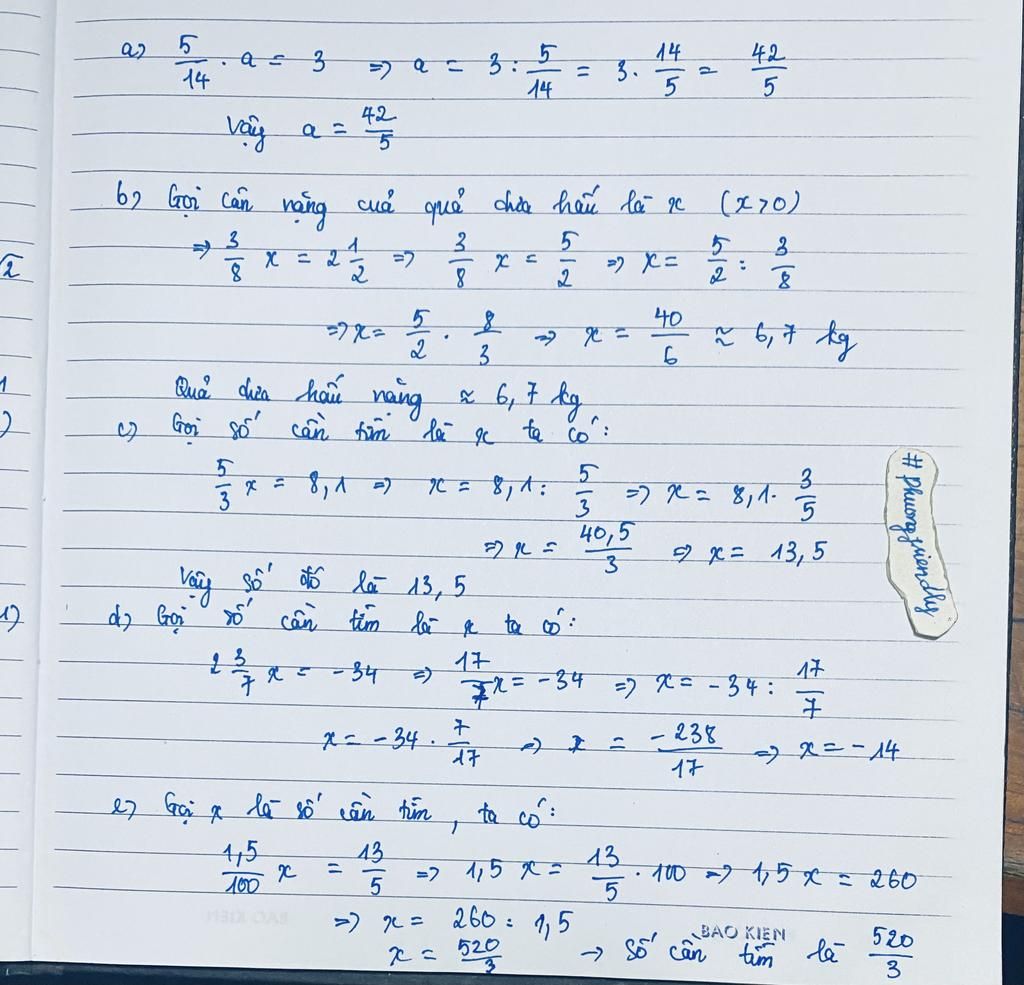 a) 5/14 . a = 3 => a = 3 : 5/14 = 3. 14/5 = 42/5
Vậy a = 42/5
b) Gọi cân nặng cuả quả dưa hấu là x (x>0)
=> 3/8 x = 2 1/2 => 3/8 x = 5/2 => x = 5/2 : 3/8
=> x = 5/2 . 8/3 => x = 40/6 ≈ 6,7 kg
Quả dưa hấu nặng ≈ 6,7 kg
c) Gọi số cần tìm là x ta có:
5/3 x = 8,1 => x = 8,1 : 5/3 => x = 8,1. 3/5
=> x = 40,5/3 => x = 13,5
Vậy số đó là 13,5
d) Gọi số cần tìm là x ta có:
2 3/7 x = -34 => 17/7 x = -34 => x = -34 : 17/7
x = -34 . 7/17 => x = -238/17 => x = -14
e) Gọi x là số cần tìm, ta có:
1,5/100 x = 13/5 => 1,5 x = 13/5 . 100 => 1,5 x = 260
=> x = 260 : 1,5
x = 520/3 → Số cần tìm là 520/3
#phuongfriendly
BAO KIEN
√2
1
)
1)